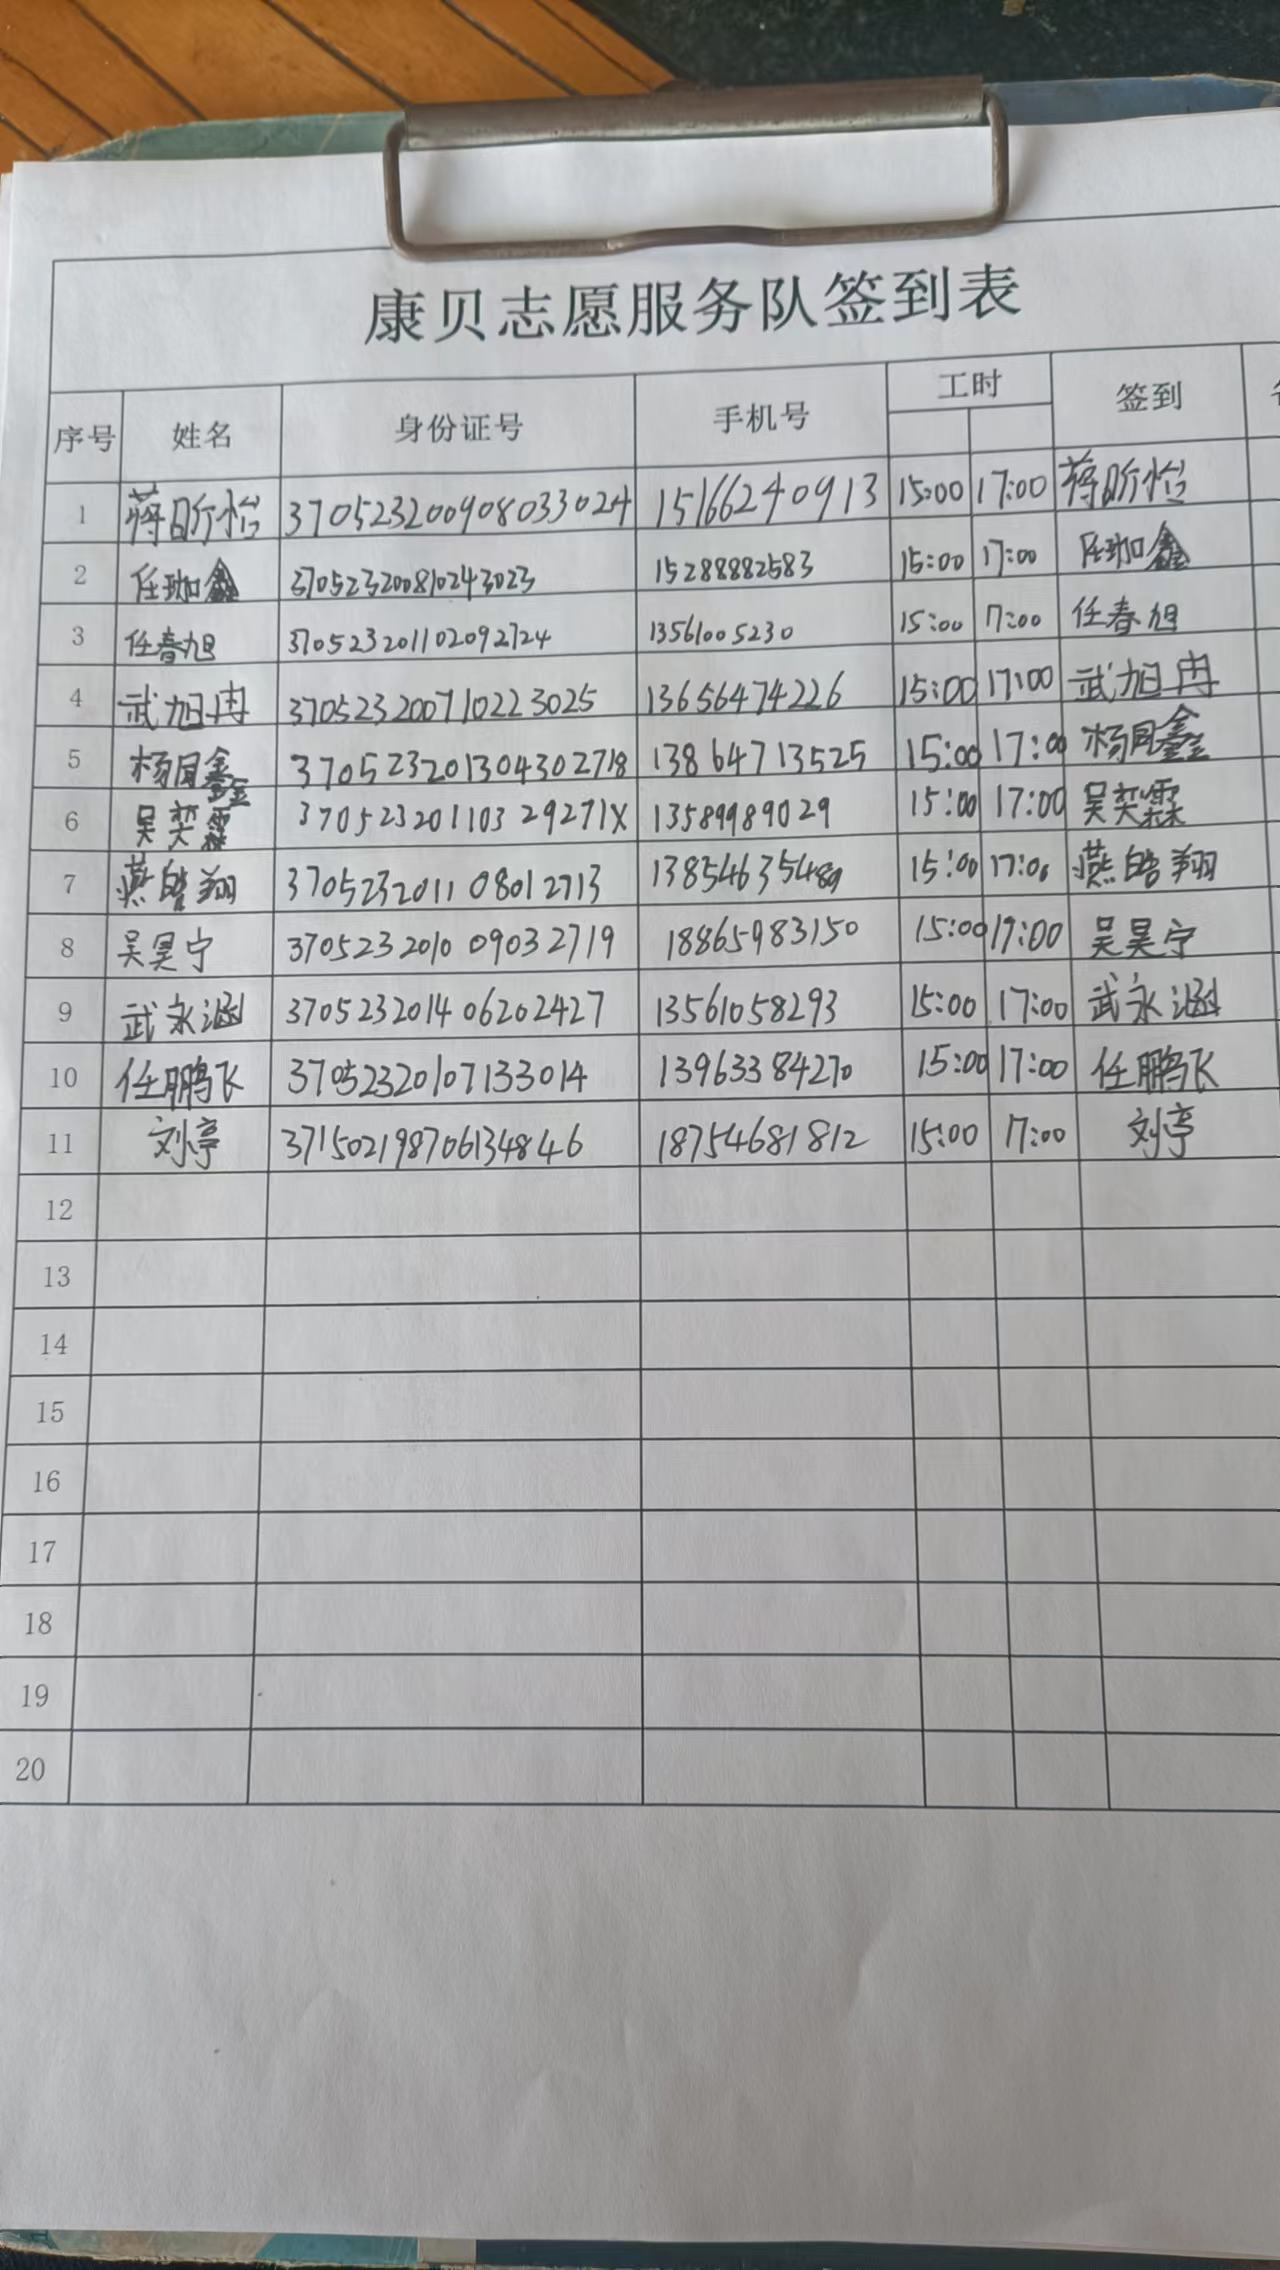 康贝志愿服务队签到表
序号 姓名 身份证号 手机号 工时 签到
1 蒋昕怡 370523200908033024 15166240913 15:00 17:00 蒋昕怡
2 任珈鑫 370523200810243023 15288882583 15:00 17:00 任珈鑫
3 任春旭 370523201102092724 13561005230 15:00 17:00 任春旭
4 武旭冉 370523200710223025 13656474226 15:00 17:00 武旭冉
5 杨同鑫 370523201304302718 13864713525 15:00 17:00 杨同鑫
6 吴奕霖 37052320110329271X 13589989029 15:00 17:00 吴奕霖
7 燕皓翔 370523201108012713 15:00 17:00 燕皓翔
8 吴昊宁 370523201009032719 18865983150 15:00 17:00 吴昊宁
9 武永涵 370523201406202427 13561058293 15:00 17:00 武永涵
10 任鹏飞 37052320107133014 13963384270 15:00 17:00 任鹏飞
11 刘亭 371502198706134846 18754681812 15:00 17:00 刘亭
12
13
14
15
16
17
18
19
20